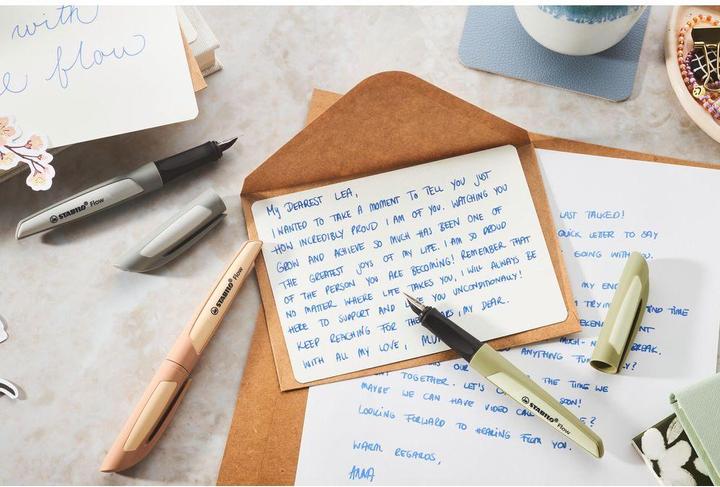 with
flow
STABILO Flow
STABILO Flow
My DEAREST LEA,
I WANTED TO TAKE A MOMENT TO TELL YOU JUST
HOW INCREDIBLY PROUD I AM OF YOU. WATCHING YOU
GROW AND ACHIEVE SO MUCH HAS BEEN ONE OF
THE GREATEST JOYS OF MY LIFE. I AM SO PROUD
OF THE PERSON YOU ARE BECOMING! REMEMBER THAT
NO MATTER WHERE LIFE TAKES YOU, I WILL ALWAYS BE
HERE TO SUPPORT AND YOU UNCONDITIONALLY!
KEEP REACHING FOR MY DEAR.
WITH ALL MY LOVE,
STABILO Flow
LAST TALKED!
QUICK LETTER TO SAY
GOING WITH
MY
TIME
BREAK.
ANYTHING
OUR
TOGETHER. LET'S THE TIME WE
MAYBE WE CAN HAVE VIDEO SOON!
LOOKING FORWARD TO HEARING FROM YOU.
WARM REGARDS,
ANNA